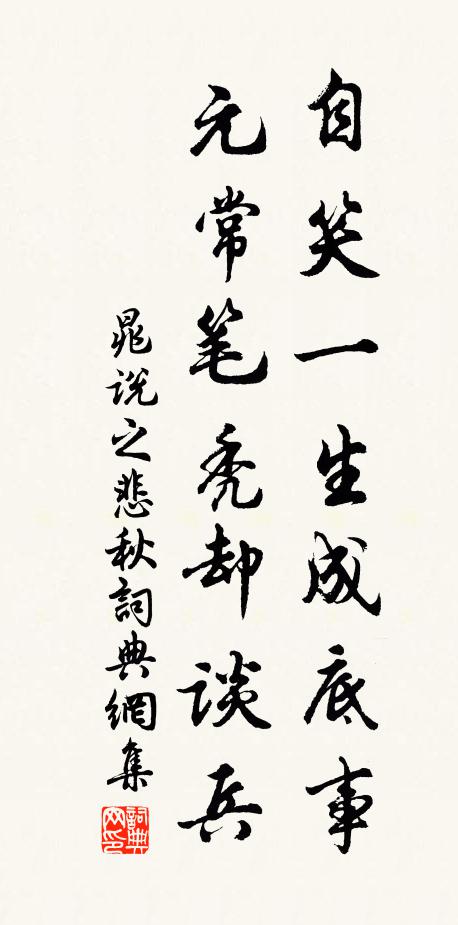 自笑一生成底事
元常笔秃却谈兵
晁说之悲秋詞典網集
詞典网印